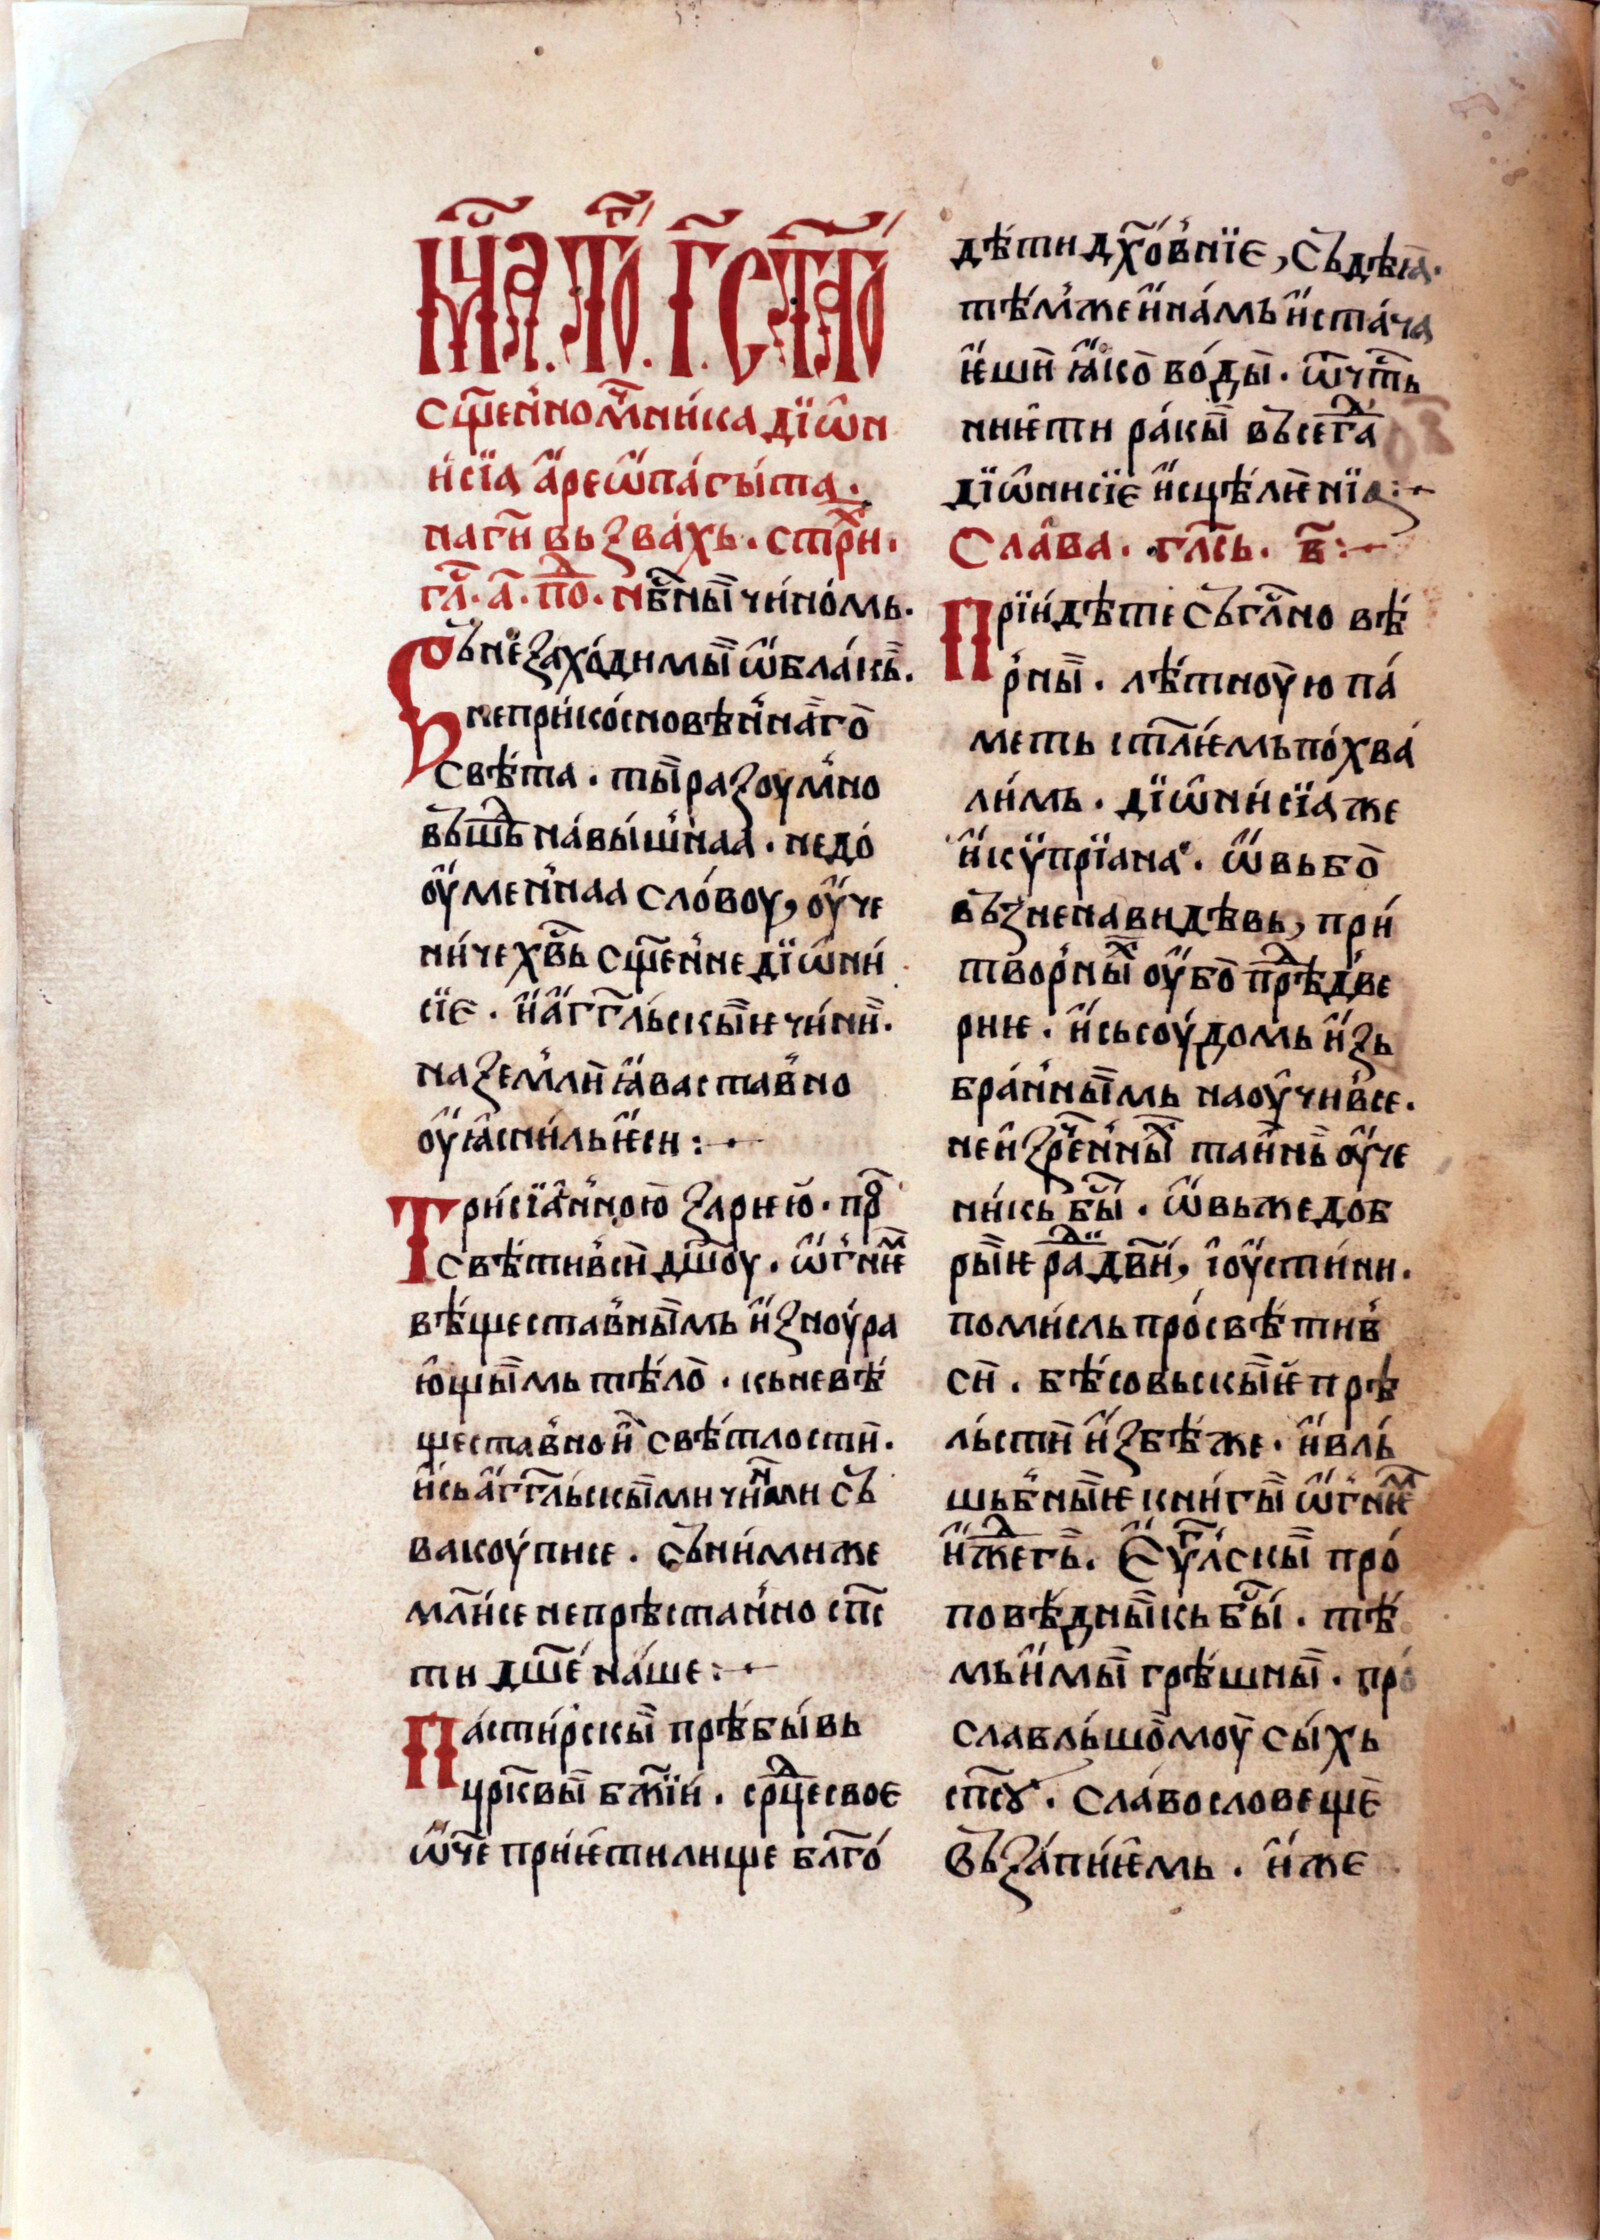 Мⷭ҇ца. то. г҃. ст҃го
сщ҃еннⷪом҃ника дїѡн
исїа а҆реѡ҆пагыта.
на ги҃ вьзвахь. стрⷯи.
гл҃. а҃. поⷣ. нбⷭ҇ныⷨ чиномь.
Въ незаходимыи ѡ҆блакь.
неприкосновеннаго
свѣта. ты разоумно
въшьⷣ на вышнаа. недо
оуменнаа словоу, оуче
ниче хвⷭ҇ь сщ҃енне дїѡни
сїе. и҆ а҆гг҃льскыѥ чини.
на земли ꙗ҆вьставно
оуꙗснил ѥси :·
Трисїанною зарѥю. прⷪ
свѣтивси дш҃оу. ѡ҆гнѥⷨ
вѣщеставнымь и҆зноура
ющымь тѣло. кь невѣ
щеставнои свѣтлости.
и҆ сь а҆гг҃льскыми чинⷨми съ
вакоуписе. съ ними же
мл҃исе непрѣстанно сп҃с
ти дш҃е наше :·
Пастирскы прѣбывь
црк҃вы бж҃їи. срⷣце своѥ
ѡ҆ч҃е приѥтилище бл҃го
дѣти дх҃овнїе, съдѣꙗ.
тѣмже и҆ намь и҆стача
ѥши ꙗ҆ко воды. ѡ҆т чтⷭ҇ь
ниѥти ракы вьсегⷣа
дїѡнисїе и҆сцѣлѥнїа :·
Слава. гл҃сь. в҃ :·
Прїидѣте съглⷭ҇но вѣ
рны. лѣтноую па
меть ст҃лѥмь похва
лимь. дїѡнисїа же
и҆ кѵпрїана. ѡ҆вь бо
възненавидѣвь, при
творныⷯ оубо прⷣѣдве
рїѥ. и҆ сь соудомь и҆зь
браннымь наоучивсе.
неизрⷱеннныⷯ таинь оуче
никь бⷭ҇ы. ѡ҆вь же доб
рыѥ раⷣ двⷭ҇и, і҆оустини.
помисль просвѣтив
си. бѣсовьскыѥ прѣ
льсти и҆збѣже. и҆ вль
шьбныѥ книгы ѡ҆гнѥⷨ
и҆жⷣегь. Еѵⷢлскы про
повѣдныкь бⷭ҇ы. тѣ
мь и҆ мы грѣшны. про
славльшомоу сыхь
сп҃соу. славословеще
възапиѥмь. и҆же